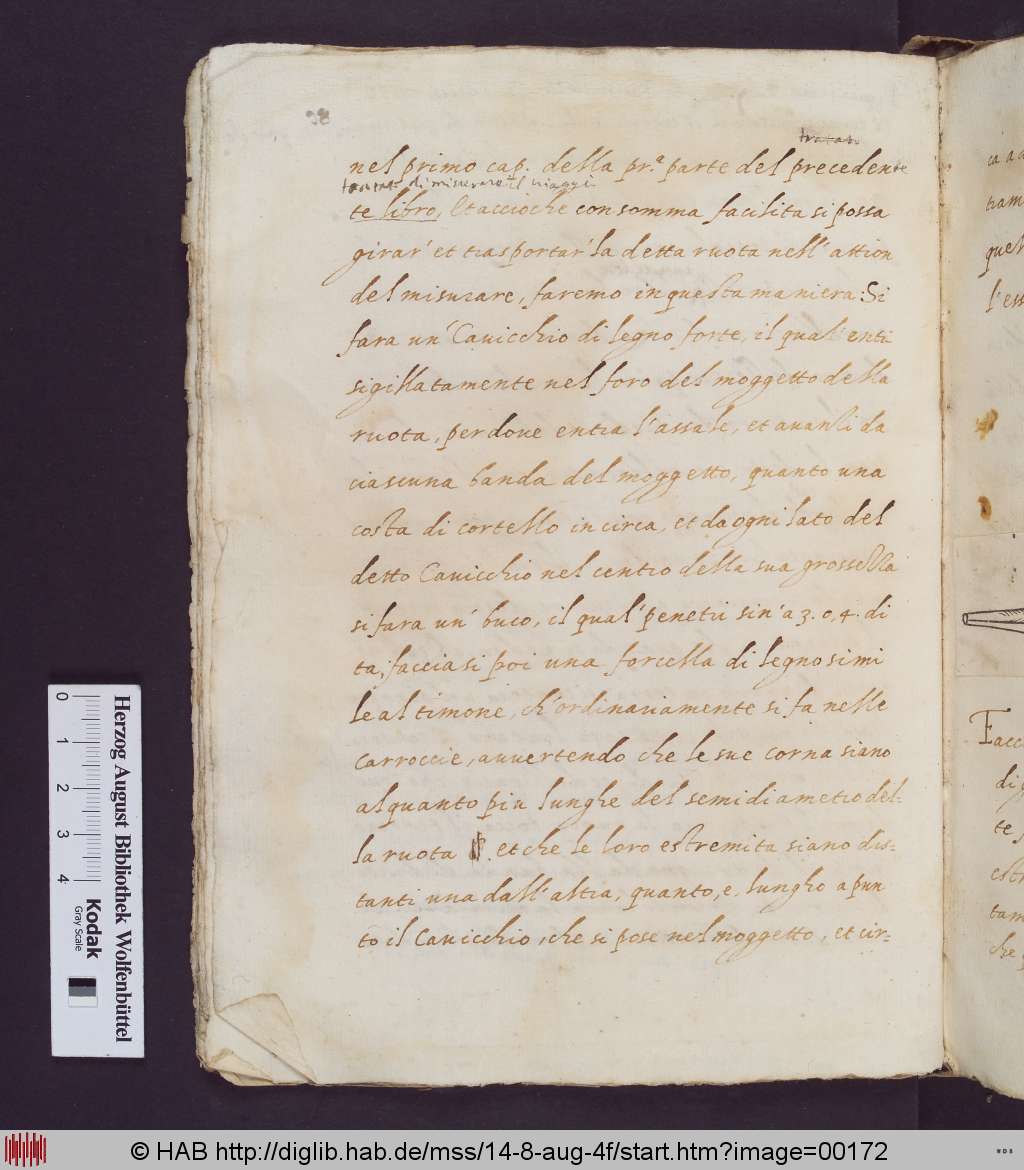 tratato
nel primo cap. della pr.ª parte del preceden
tratato di misurare il viaggi
te libro, Et accioche con somma facilita si possa
girar' et trasportar' la detta ruota nell' attion
del misurare, faremo in questa maniera: Si
fara un' Cavicchio di legno forte, il qual' entri
sigillatamente nel foro del moggetto della
ruota, per dove entra l'assale, et avanzi da
ciascuna banda del moggetto, quanto una
costa di cortello in circa, et da ogni lato del
detto Cavicchio nel centro della sua grossezza
si fara un' buco, il qual' penetri sin' a 3. o, 4. di
ta; facciasi poi una forcella di legno simi
le al timone, ch' ordinariamente si fa nelle
carroccie, avvertendo che le sue corna siano
alquanto piu lunghe del semidiametro del-
la ruota . et che le loro estremita siano dis=
tanti una dall' altra, quanto, e, lungho apun
to il Cavicchio, che si pose nel moggetto, et cir=
ca a
tram
quel
l'ess
Facc
di
te
estr
tam
che
0
1
2
3
4
Herzog August Bibliothek Wolfenbüttel
Kodak
Gray Scale
© HAB http://diglib.hab.de/mss/14-8-aug-4f/start.htm?image=00172